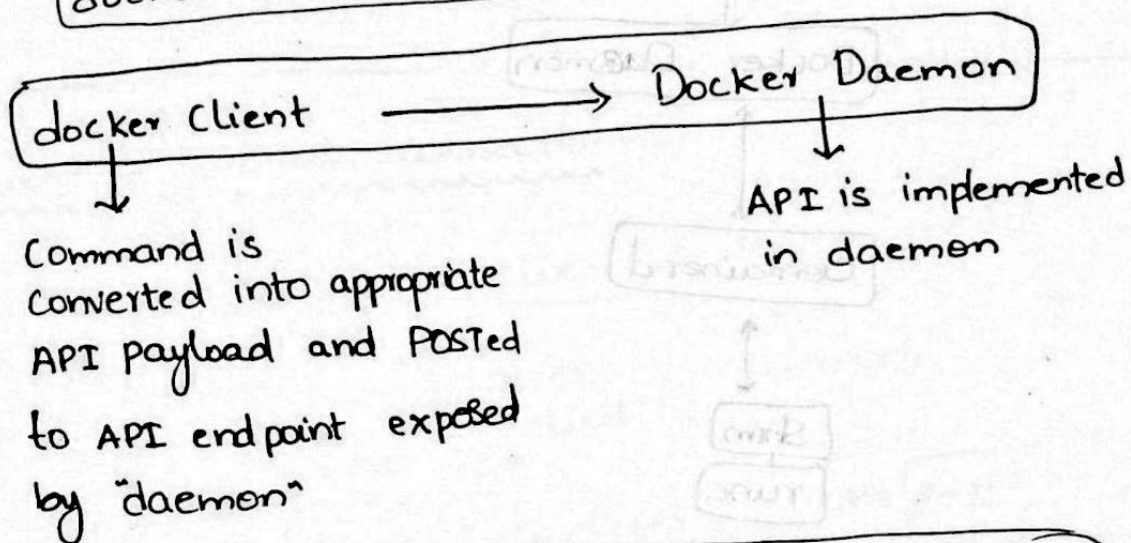 docker Client → Docker Daemon
Command is
converted into appropriate
API payload and POSTed
to API endpoint exposed
by "daemon"
API is implemented
in daemon
Docker Daemon
Containerd
shim
runc